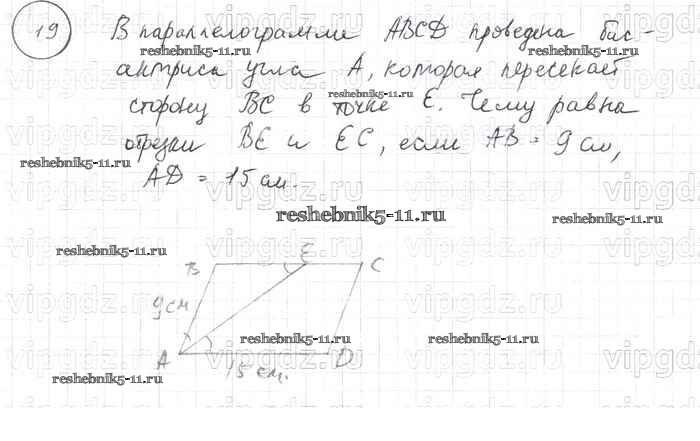 19 В параллелограмме ABCD проведена бис-
reshebnik5-11.ru reshebnik5-11.ru
сектриса угла А, которая пересекает
reshebnik5-11.ru
сторону BC в точке E. Чему равна
отрезки BE и EC, если AB = 9 см,
reshebnik5-11.ru
AD = 15 см.
reshebnik5-11.ru reshebnik5-11.ru
reshebnik5-11.ru
B E C
9 см
reshebnik5-11.ru reshebnik5-11.ru
A D
15 см.
reshebnik5-11.ru
vipgdz.ru vipgdz.ru vipgdz.ru vipgdz.ru